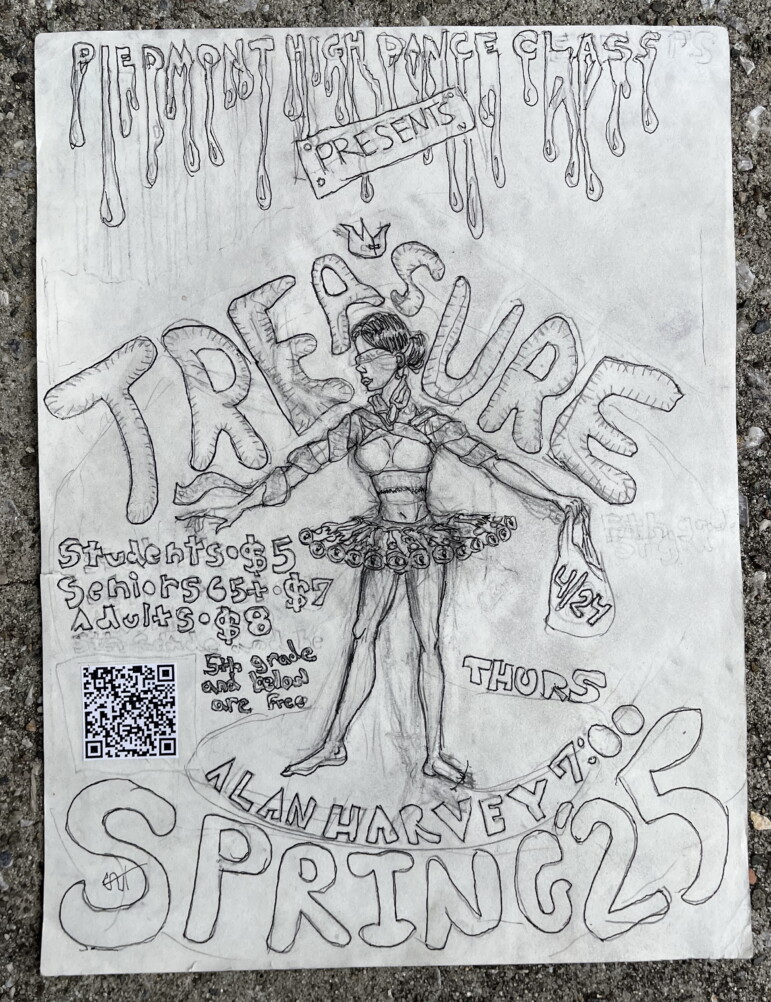 PIEDMONT HIGH DANCE CLASS
PRESENTS
TREASURE
Students•$5
Seniors 65+•$7
Adults•$8
5th grade
and below
are free
4/24
THURS
ALAN HARVEY 7:00
SPRING '25